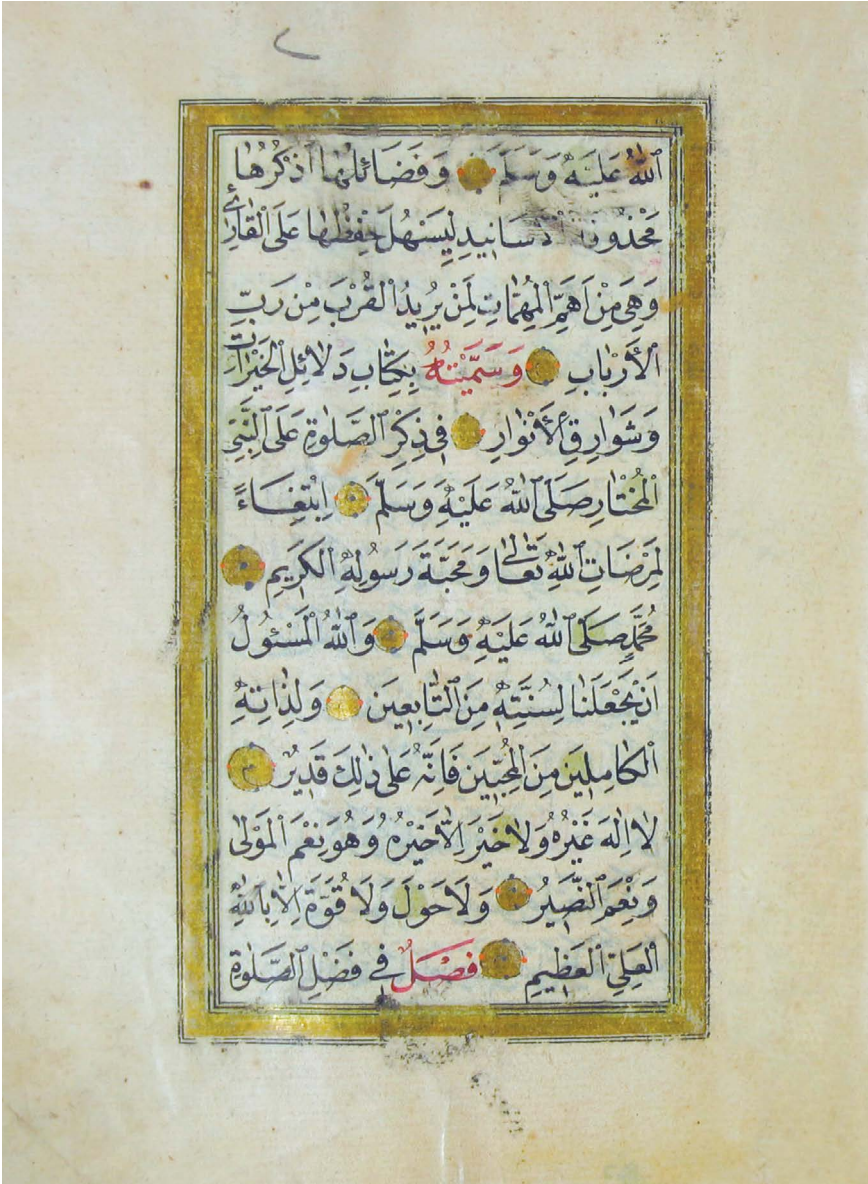 اللهُ عَلَيْهِ وَسَلَّمَ وَفَضَائِلُهَا اَذْكُرُهَا
مَحْذُوفَةَ الْاَسَانِيدِ لِيَسْهُلَ حِفْظُهَا عَلَى الْقَارِئِ
وَهِيَ مِنْ اَهَمِّ الْمُهِمَّاتِ لِمَنْ يُرِيدُ الْقُرْبَ مِنْ رَبِّ
الْأَرْبَابِ وَسَمَّيْتُهُ بِكِتَابِ دَلَائِلِ الْخَيْرَاتِ
وَشَوَارِقِ الْأَنْوَارِ فِي ذِكْرِ الصَّلٰوةِ عَلَى النَّبِيِّ
الْمُخْتَارِ صَلَّى اللهُ عَلَيْهِ وَسَلَّمَ اِبْتِغَاءً
لِمَرْضَاتِ اللهِ تَعَالٰى وَمَحَبَّةَ رَسُولِهِ الْكَرِيمِ
مُحَمَّدٍ صَلَّى اللهُ عَلَيْهِ وَسَلَّمَ وَاللهُ الْمَسْئُولُ
اَنْ يَجْعَلَنَا لِسُنَّتِهِ مِنَ التَّابِعِينَ وَلِذَاتِهِ
الْكَامِلِينَ مِنَ الْمُحِبِّينَ فَاِنَّهُ عَلٰى ذٰلِكَ قَدِيرٌ
لَا اِلٰهَ غَيْرُهُ وَلَا خَيْرَ اِلَّا خَيْرُهُ وَهُوَ نِعْمَ الْمَوْلٰى
وَنِعْمَ النَّصِيرُ وَلَا حَوْلَ وَلَا قُوَّةَ اِلَّا بِاللهِ
الْعَلِيِّ الْعَظِيمِ فَصْلٌ فِي فَضْلِ الصَّلٰوةِ